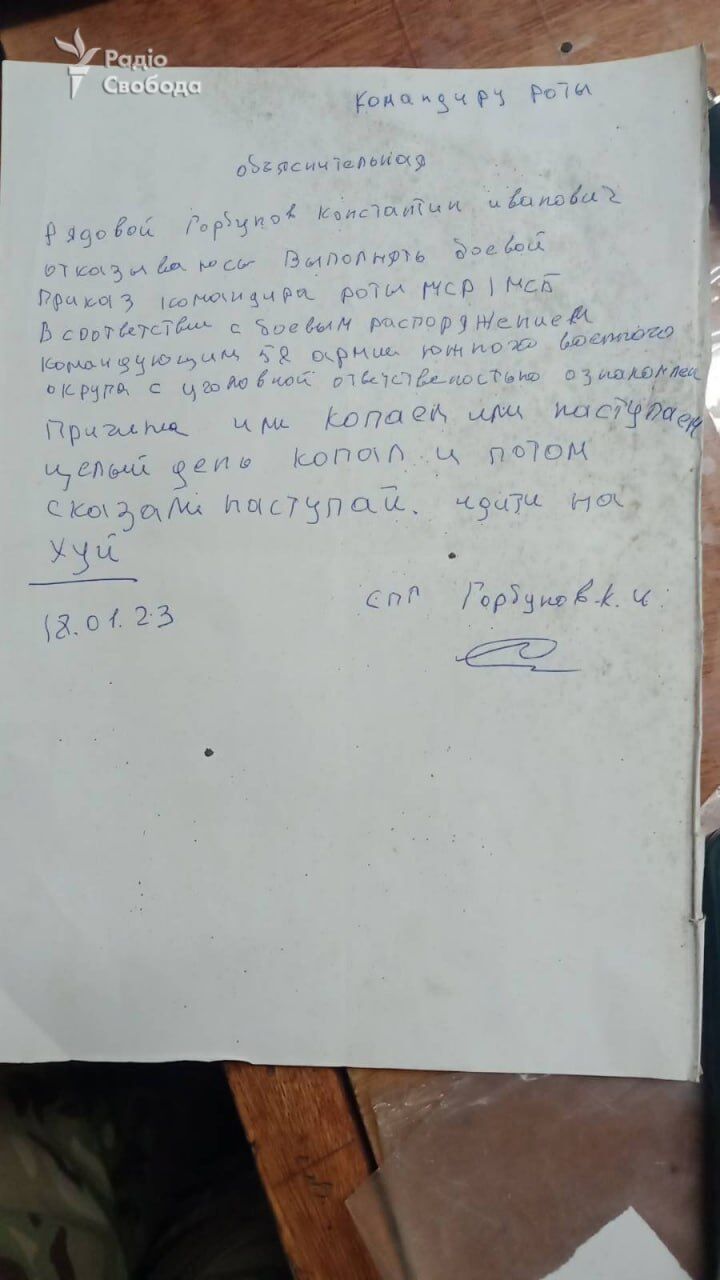 Радіо
Свобода
командиру роты
объяснительная
Рядовой Горбунов константин иванович
отказываюсь выполнять боевой
Приказ командира роты МСР 1 МСБ
В соответствии с боевым распоряжением
командующим 58 армии южного военного
округа с уголовной ответственостью ознакомлен
Причина или копаем или наступаем
целый день копал и потом
сказали наступай. идити на
хуй
18.01.23 СПП Горбунов.к.и.